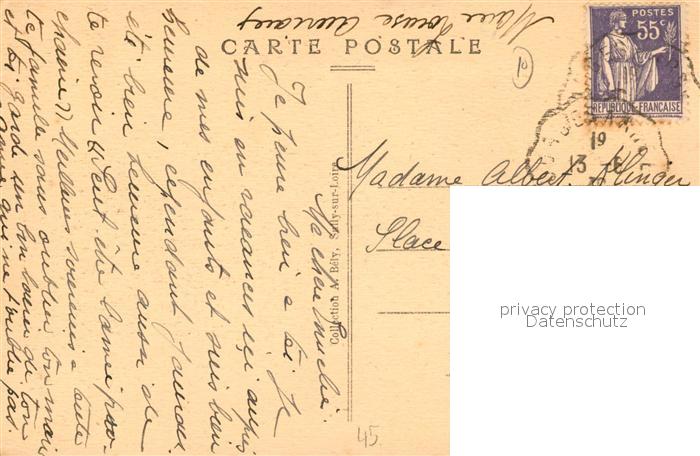 Marie Louise
CARTE POSTALE
POSTES
55c
REPUBLIQUE FRANÇAISE
19
13
Ma chère
Je pense bien à toi je
suis en vacances ici auprès
de mes enfants et suis bien
heureuse, cependant j'aurais
été bien heureuse aussi de
te revoir peut être l'année pro-
chaine. Meilleurs souvenirs à toute
ta famille sans oublier ton mari
et toi garde un bon baiser de ton
amie qui ne t'oublie pas.
Collection A. Bély, Sully-sur-Loire
Madame Albert
Place
privacy protection
Datenschutz
45